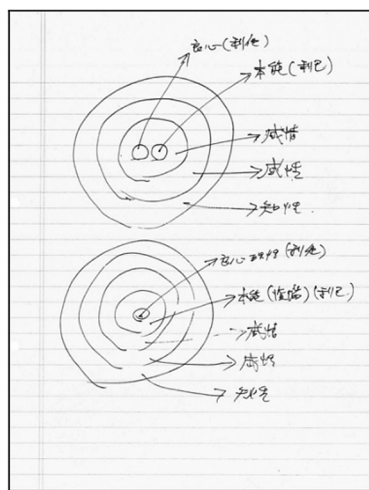 良心(利他)
本能(利己)
感情
感性
知性
良心 理性(利他)
本能(煩悩)(利己)
感情
感性
知性